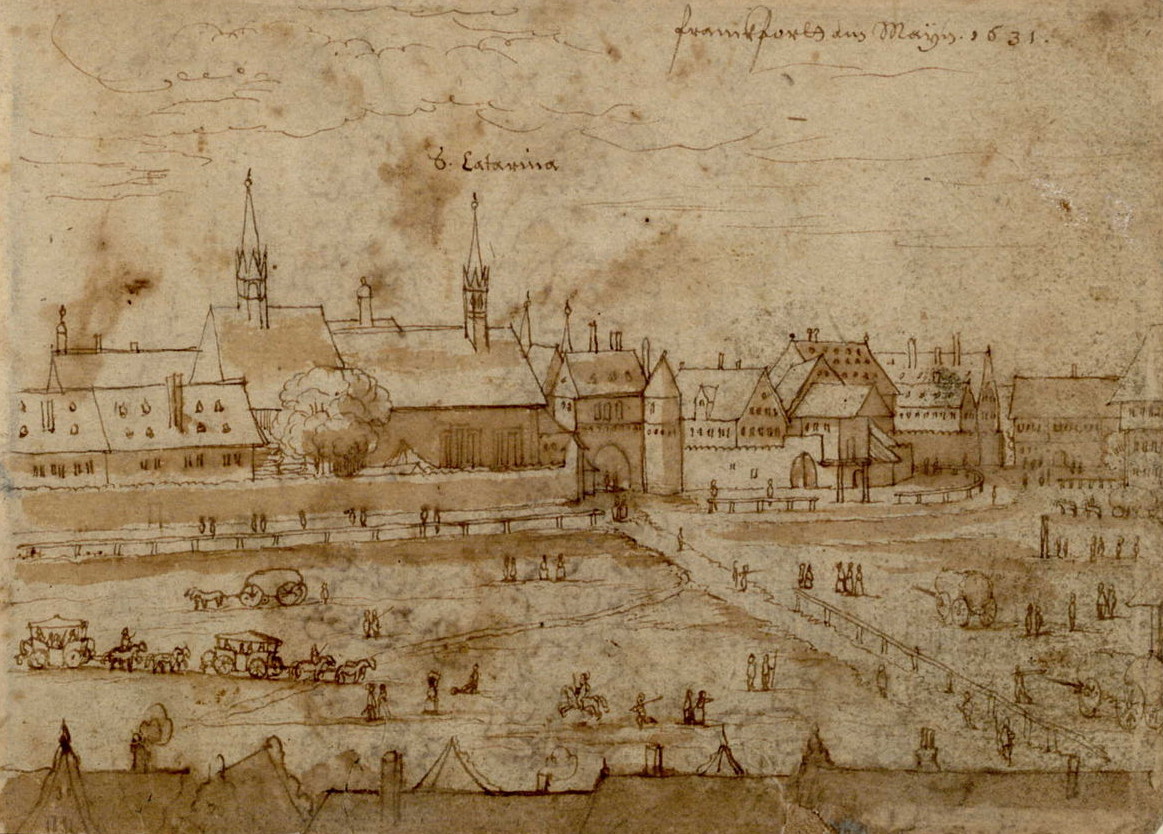 franckfortt am Mayn. 1631.
S. Catarina